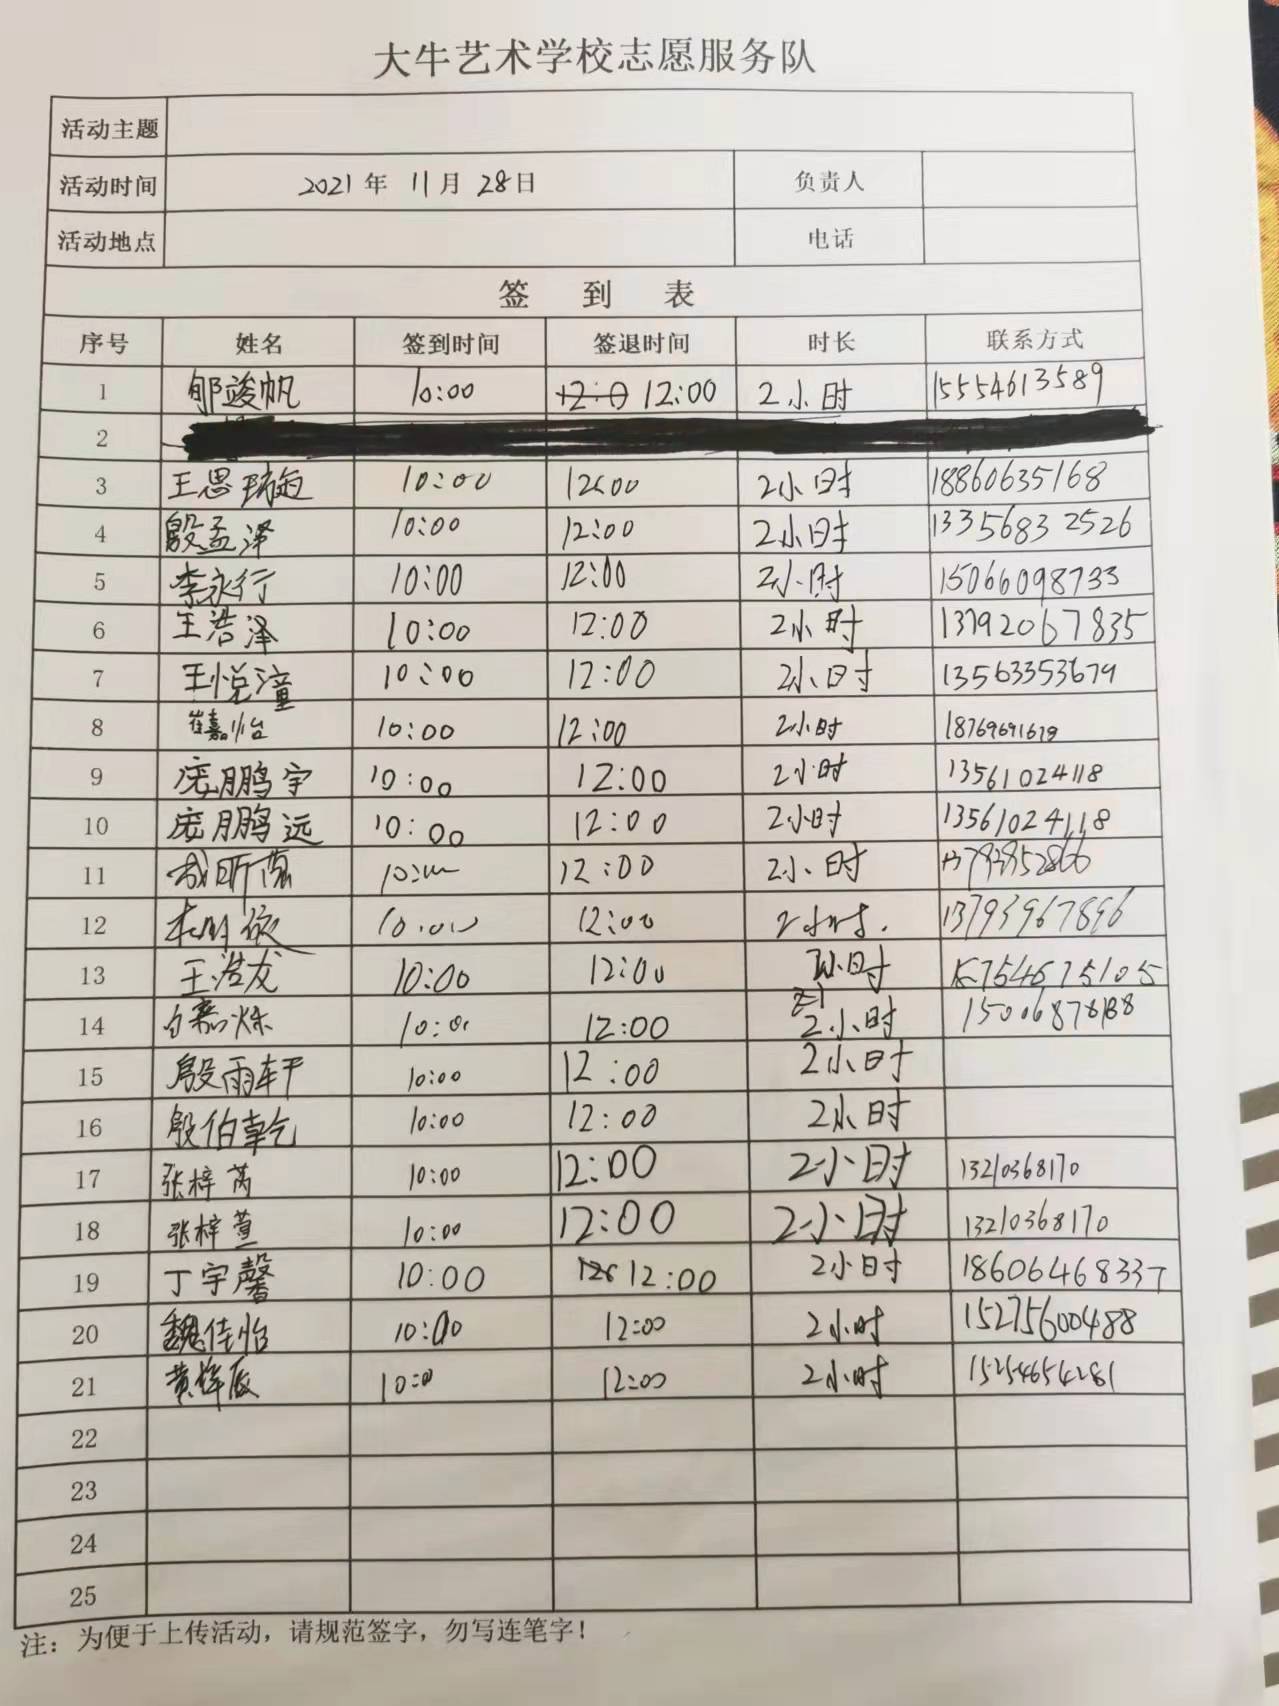 大牛艺术学校志愿服务队
活动主题
活动时间 2021年 11月 28日 负责人
活动地点 电话
签 到 表
序号 姓名 签到时间 签退时间 时长 联系方式
1 郇竣帆 10:00 12:00 2小时 15554613589
2
3 王思璇 10:00 12:00 2小时 18860635168
4 殷孟泽 10:00 12:00 2小时 13356832526
5 李永行 10:00 12:00 2小时 15066098733
6 王浩泽 10:00 12:00 2小时 13792067835
7 王悦潼 10:00 12:00 2小时 13563353679
8 崔嘉怡 10:00 12:00 2小时 18769691679
9 庞鹏宇 10:00 12:00 2小时 13561024118
10 庞鹏远 10:00 12:00 2小时 13561024118
11 10:00 12:00 2小时
12 10:00 12:00 2小时 13793967896
13 王浩龙 10:00 12:00 小时
14 10:00 12:00 2小时
15 殷雨轩 10:00 12:00 2小时
16 殷伯乾 10:00 12:00 2小时
17 张梓芮 10:00 12:00 2小时 13210368170
18 张梓萱 10:00 12:00 2小时 13210368170
19 丁宇馨 10:00 12:00 2小时 18606468337
20 魏佳怡 10:00 12:00 2小时 15275600488
21 10:00 12:00 2小时 15254654281
22
23
24
25
注：为便于上传活动，请规范签字，勿写连笔字！